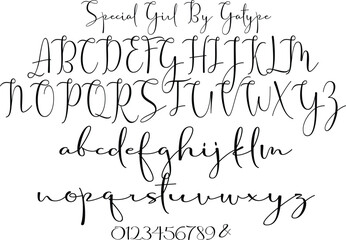 Special Girl By Gatype
ABCDEFGHIJKLM
NOPQRSTUVWXYZ
abcdefghijklm
nopqrstuvwxyz
0123456789&